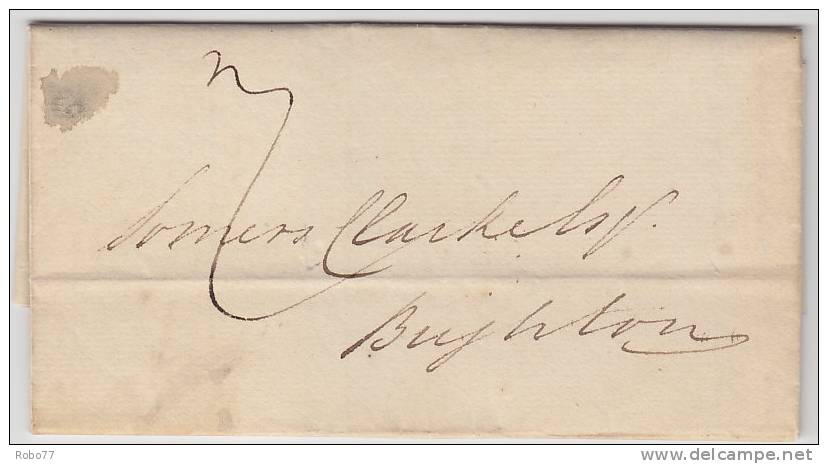 7
Somers Clarke Esqr.
Brighton
Robo77
www.delcampe.net